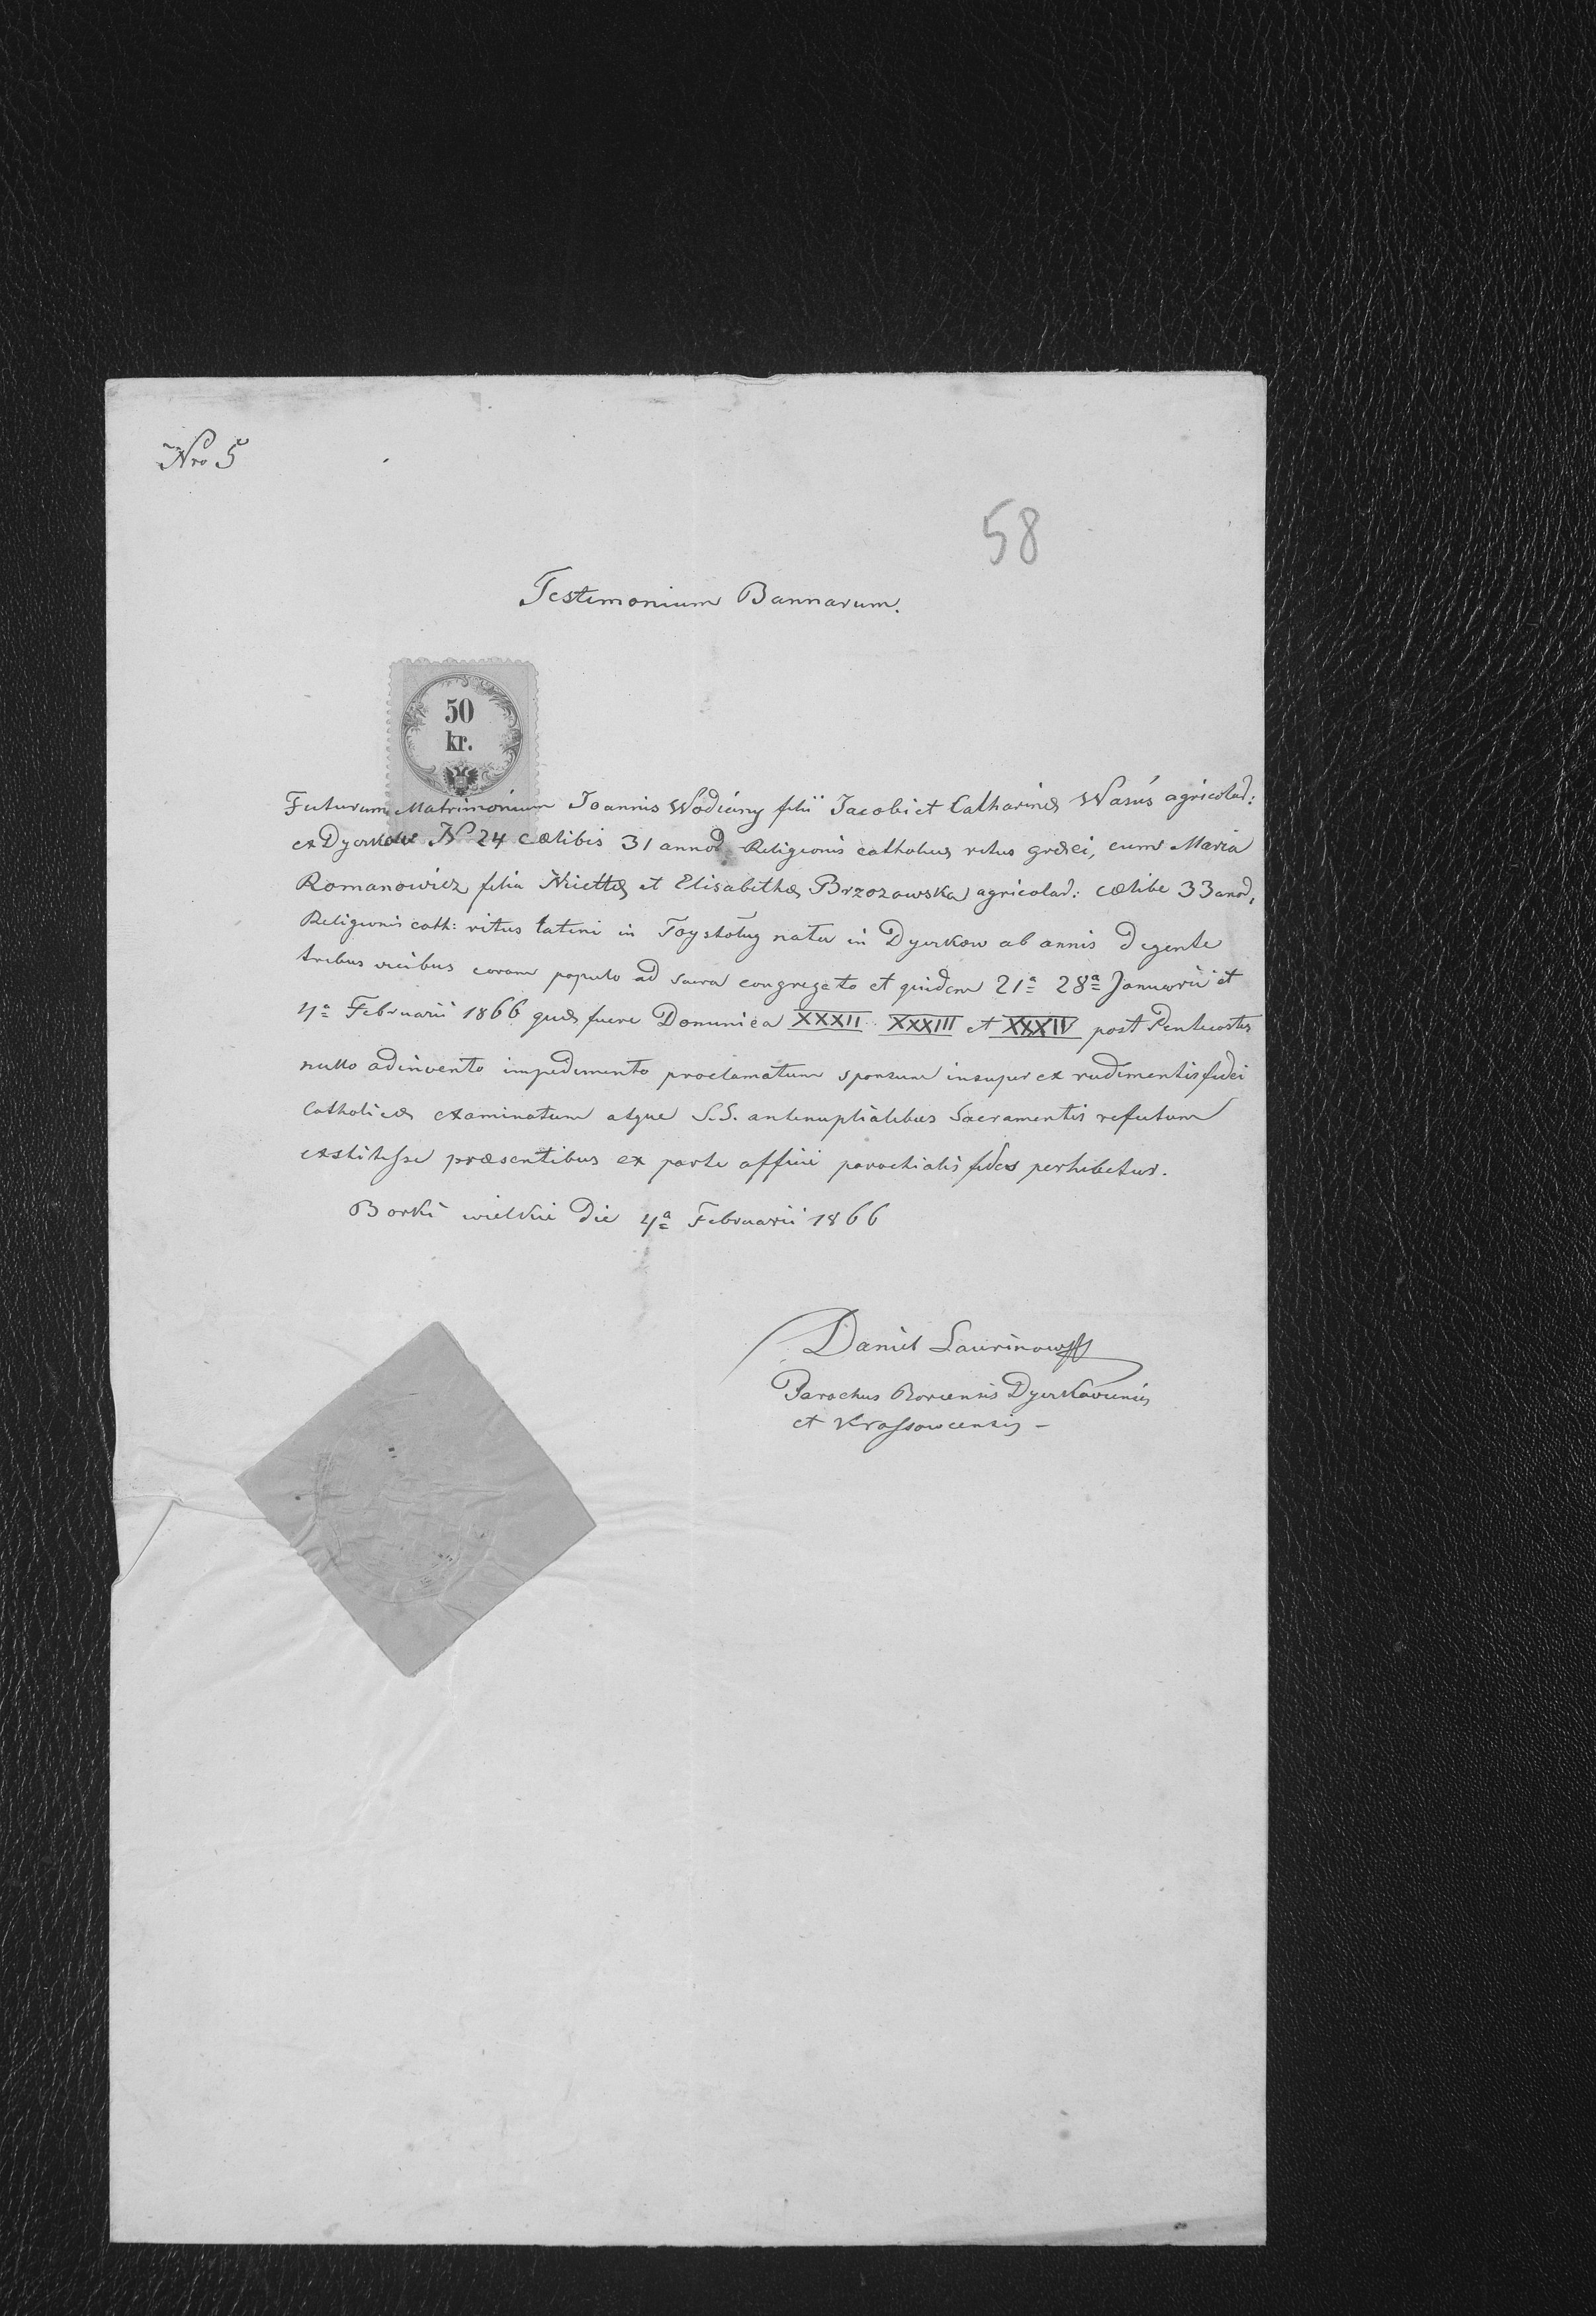 Nro 5
58
Testimonium Bannarum.
50
kr.
Futurum Matrimonium Joannis Wodiány filii Jacobi et Catharinæ Wasús agricolar:
ex Dyczkow No 24 cœlibis 31 annor Religionis catholicæ ritus græci, cum Maria
Romanowicz filia Nicettæ et Elisabethæ Brzozowska agricolar: cœlibe 33 anor,
Religionis cath: ritus latini in nata in Dyczkow ab annis degente
tribus vicibus coram populo ad sacra congregato et quidem 21a 28a Januarii et
4a Februarii 1866 quæ fuere Dominica XXXII XXXIII et XXXIV post Pentecostes
nullo adinvento impedimento proclamatum sponsum insuper ex rudimentis fidei
Catholicæ examinatum atque S.S. antenuptialibus Sacramentis refectum
exstitisse præsentibus ex parte officii parochialis fides perhibetur.
Borki wielkie die 4a Februarii 1866
Daniel
Parochus Borcensis Dyczkoviensis
et Krassowcensis –